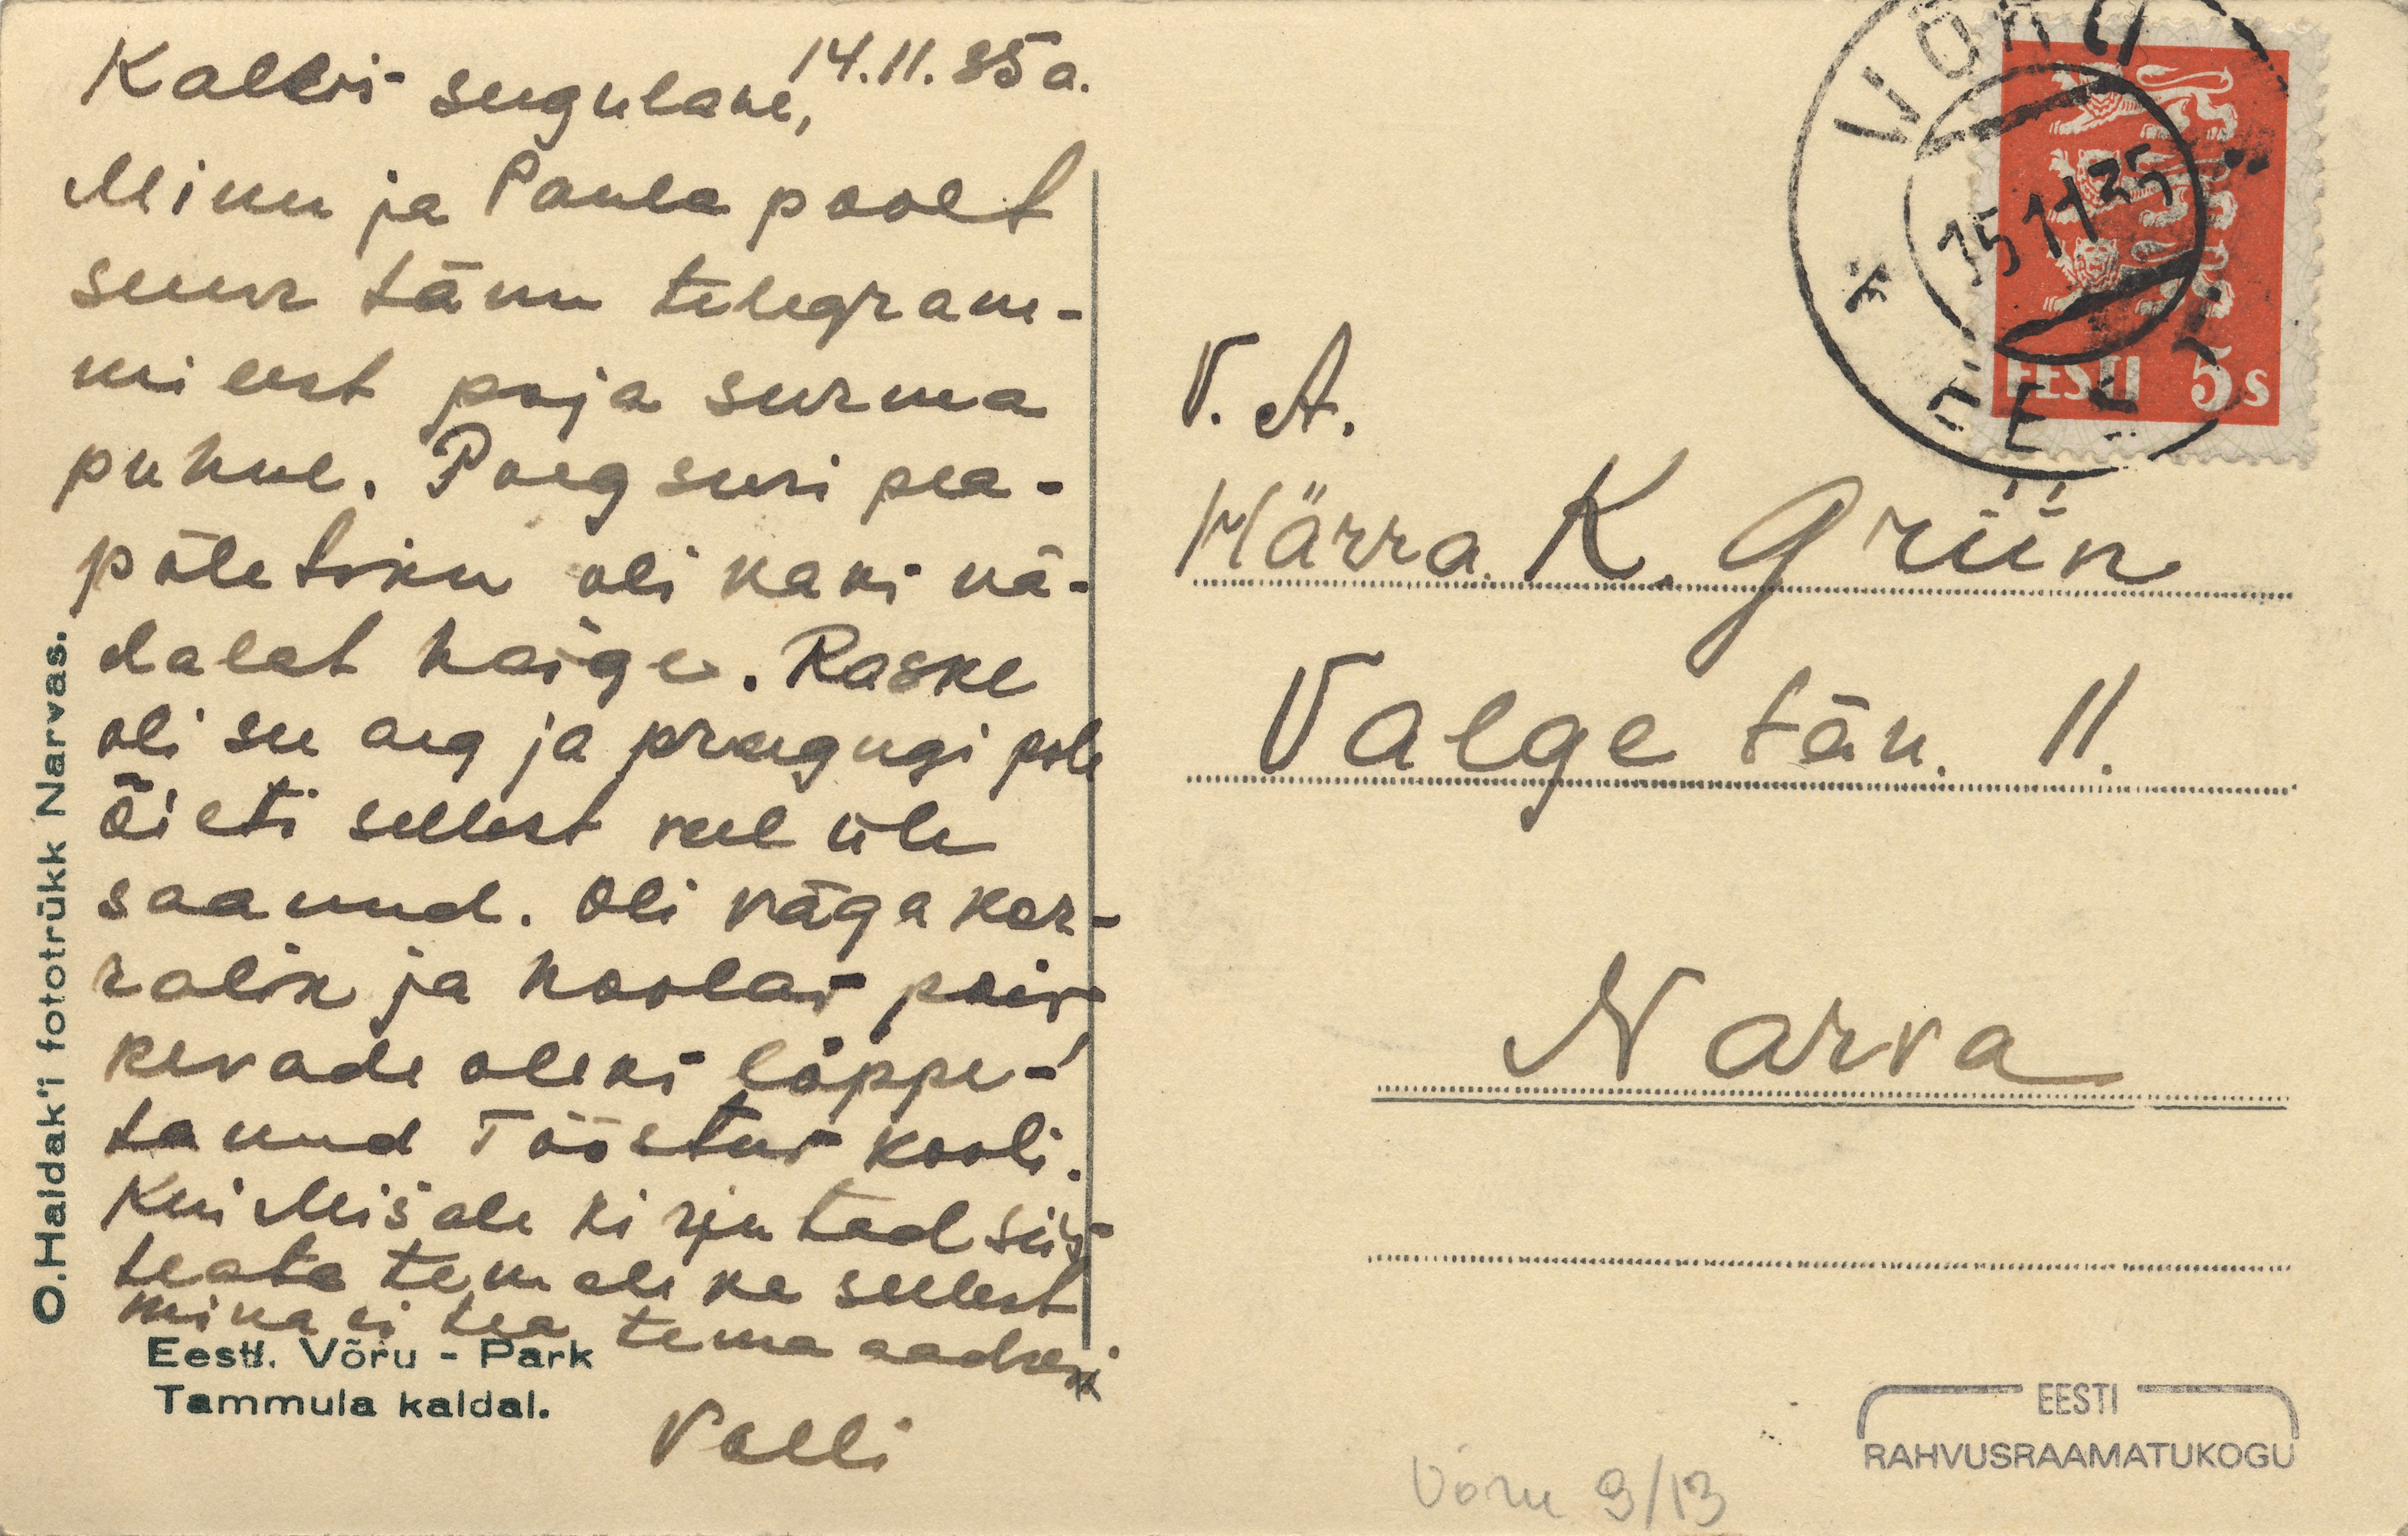 14.11.35 a.
Kallis sugulane,
Minu ja Paula poolt
suur tänu telegram-
mi eest poja surma
puhul. Poeg suri pea-
põletikku oli kaks nä-
dalat haige. Raske
oli see aeg ja praegugi pole
õieti sellest veel üle
saanud. Oli väga kor-
ralik ja hoolas poiss
kevade oleks lõppe-
tanud Tööstuskooli.
Kui Mišale kirjutad siis
teata temale ka sellest
mina ei tea tema aadressi
Valli
O.Haldak'i fototrükk Narvas.
Eesti. Võru - Park
Tammula kaldal.
VÕRU
15 11 35
EESTI
EESTI 5s
V. A.
Härra K. Grün
Valge tän. 11.
Narva
Võru 9/13
EESTI
RAHVUSRAAMATUKOGU